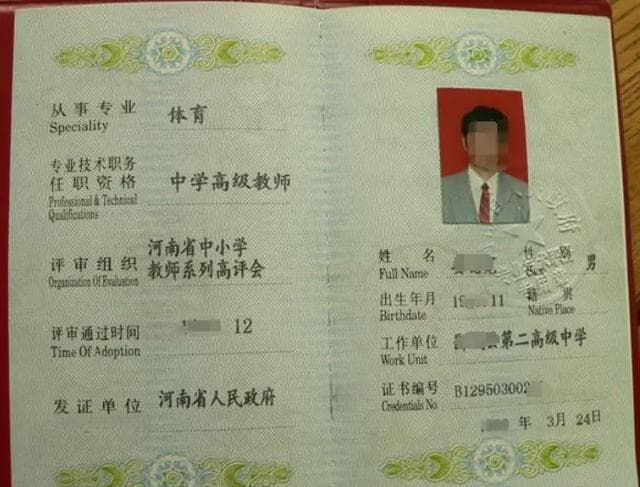 从事专业 体育
Speciality
专业技术职务
任职资格 中学高级教师
Professional & Technical
Qualifications
评审组织 河南省中小学
教师系列高评会
Organization Of Evaluation
评审通过时间 12
Time Of Adoption
发证单位 河南省人民政府
姓名 性别 男
Full Name Sex
出生年月 19 11 籍贯
Birthdate Native Place
工作单位 第二高级中学
Work Unit
证书编号 B129503002
Credentials No.
年 3月 24日